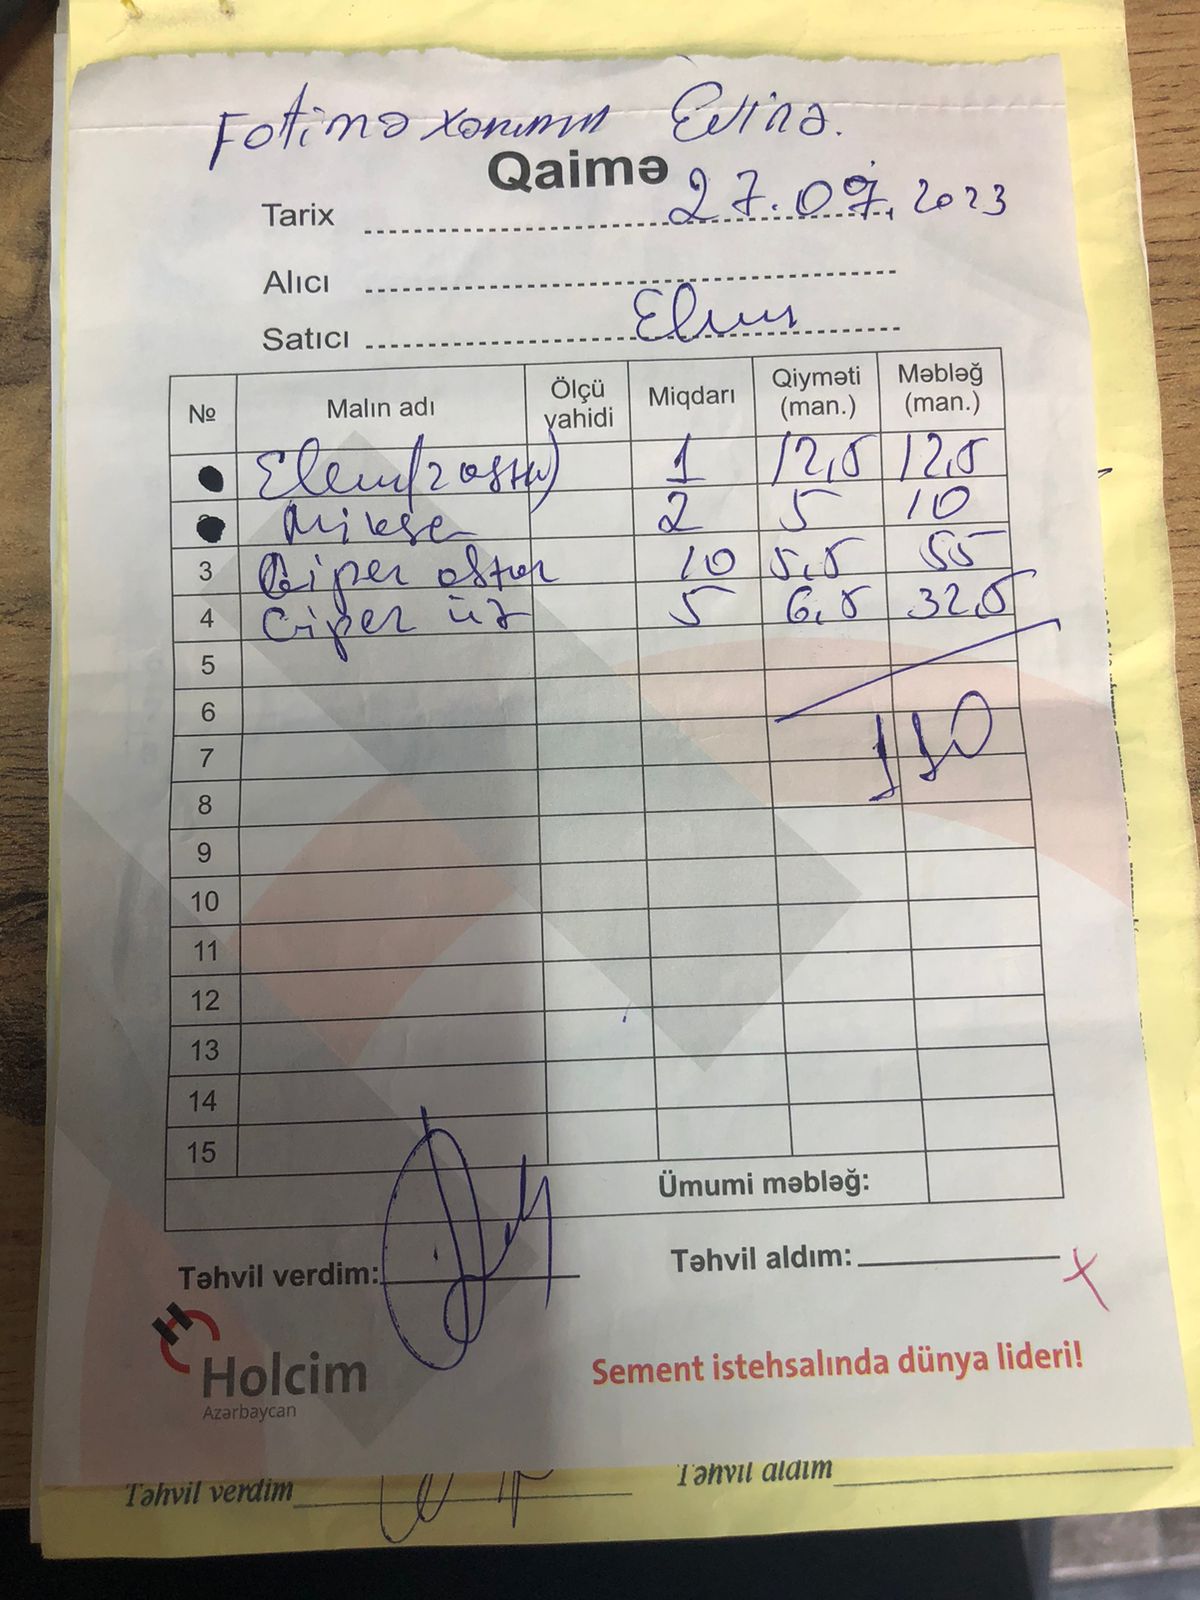 Fatimə xanımın Evinə.
Qaimə
Tarix 27.07.2023
Alıcı
Satıcı
№ Malın adı Ölçü vahidi Miqdarı Qiyməti (man.) Məbləğ (man.)
1 12,5 12,5
2 5 10
3 Giper astar 10 5,5 55
4 Giper üz 5 6,5 32,5
5
6
110
7
8
9
10
11
12
13
14
15
Ümumi məbləğ:
Təhvil verdim: Təhvil aldım:
Holcim
Azərbaycan
Sement istehsalında dünya lideri!
Təhvil verdim Təhvil aldım